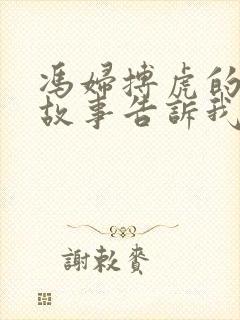 馮婦搏虎的
故事告訴我
謝敕賚